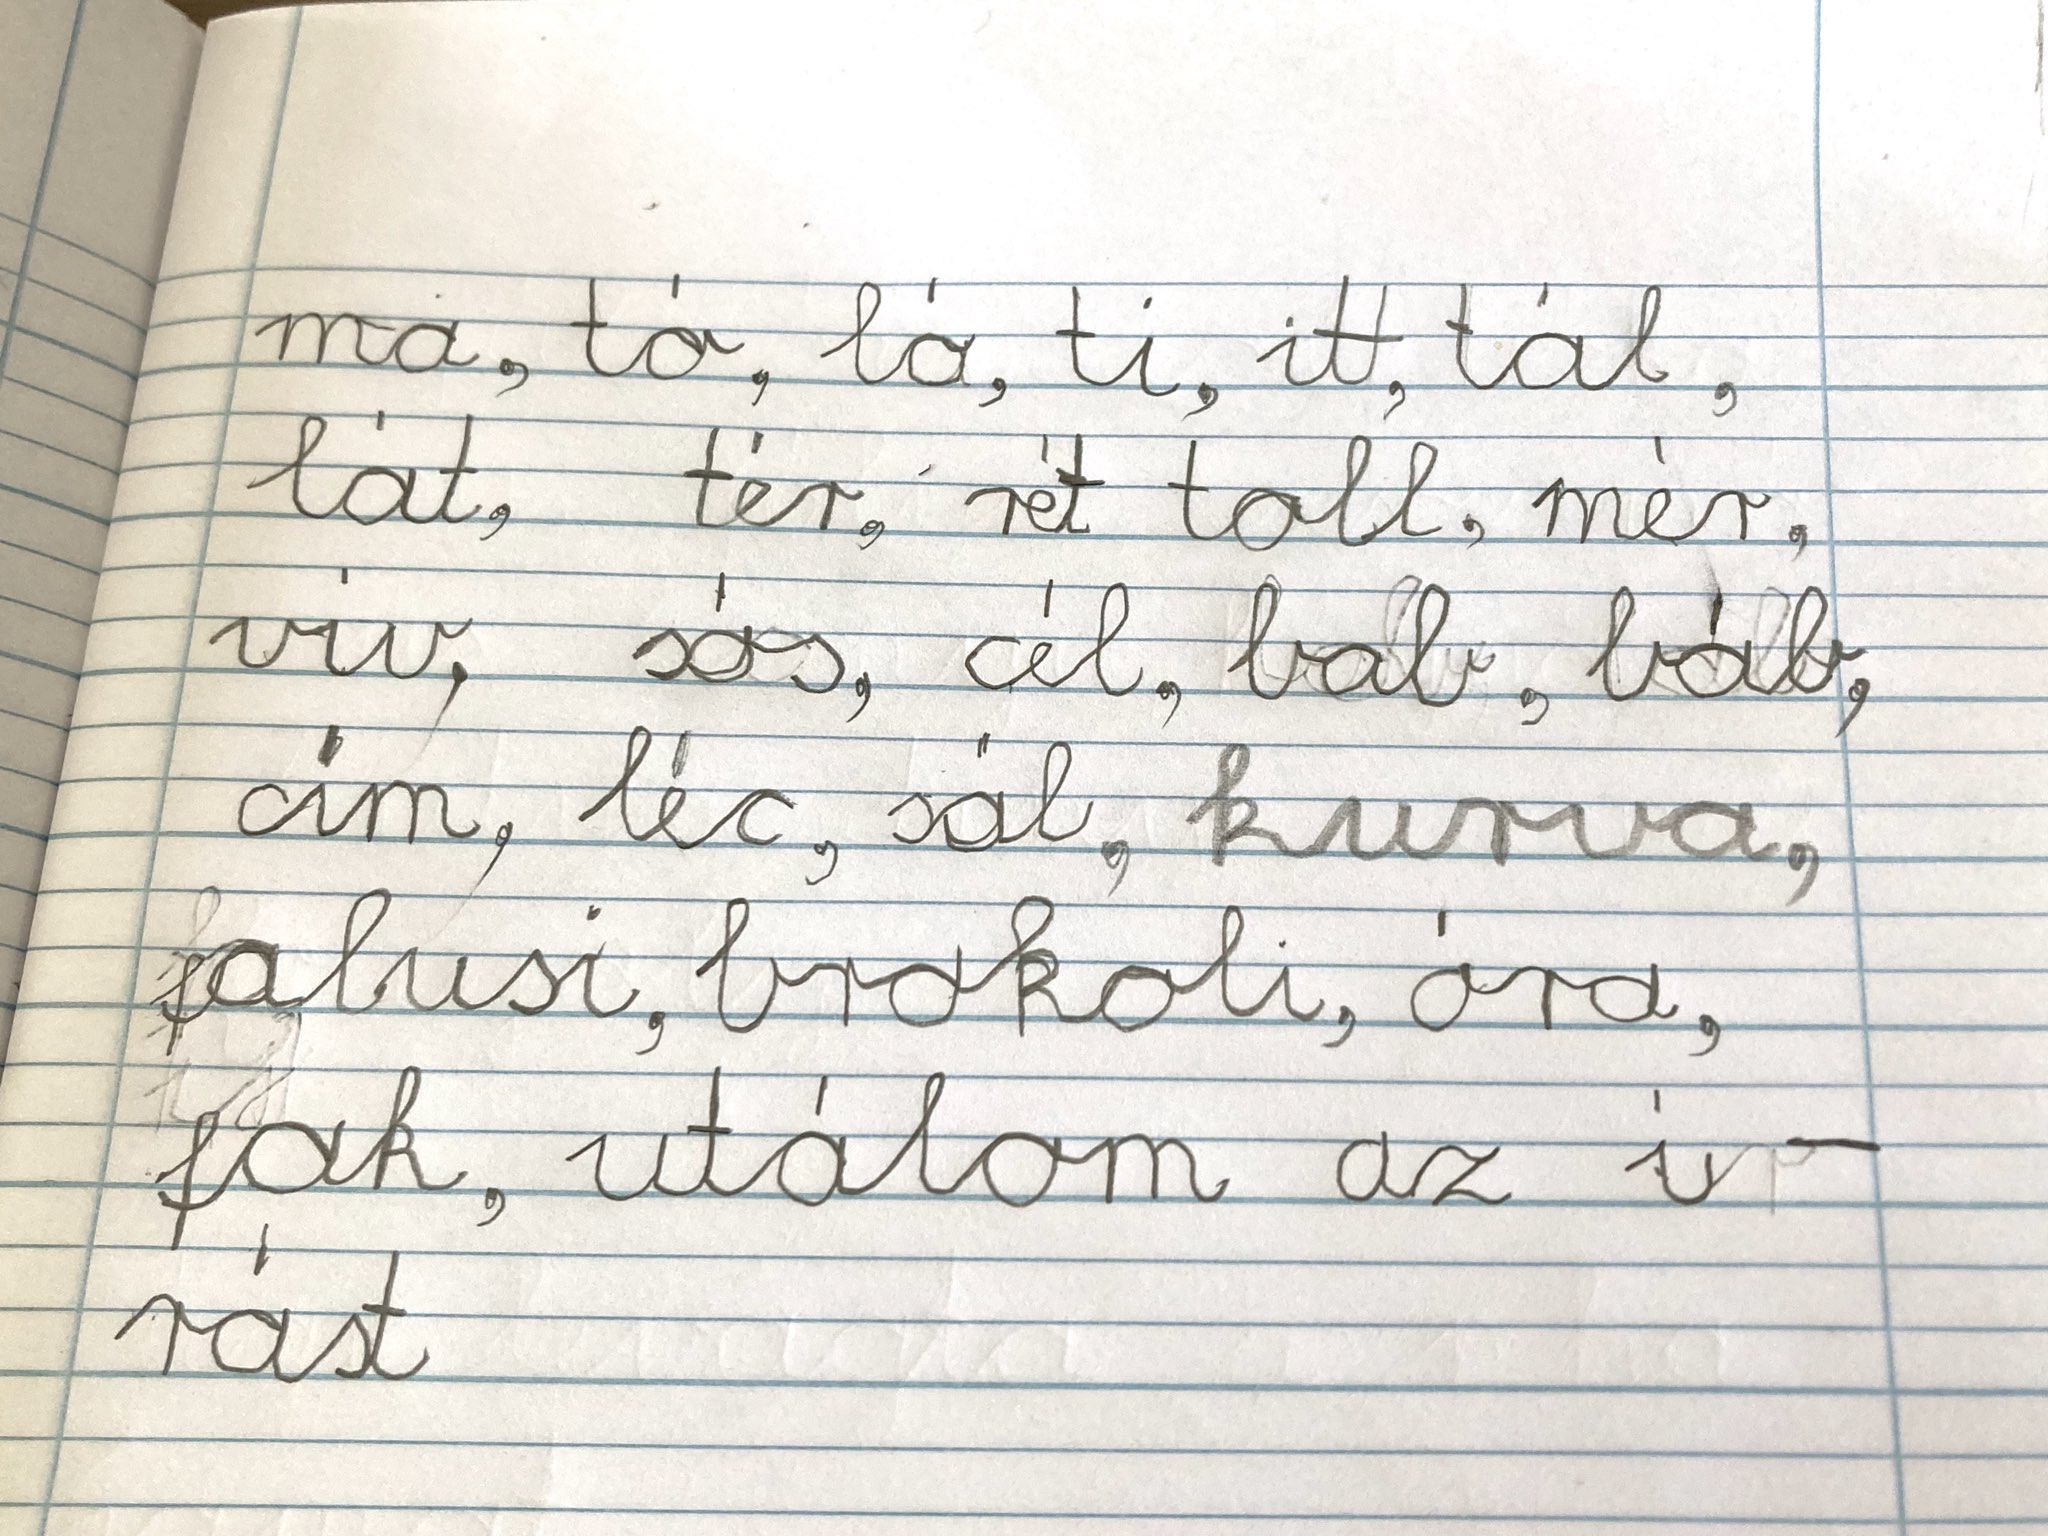 ma, tó, ló, ti, itt, tál,
lát, tér, rét toll, mér,
vív, sós, cél, bab, báb,
cím, léc, sál, kurva,
falusi, brokoli, óra,
fak, utálom az í-
rást